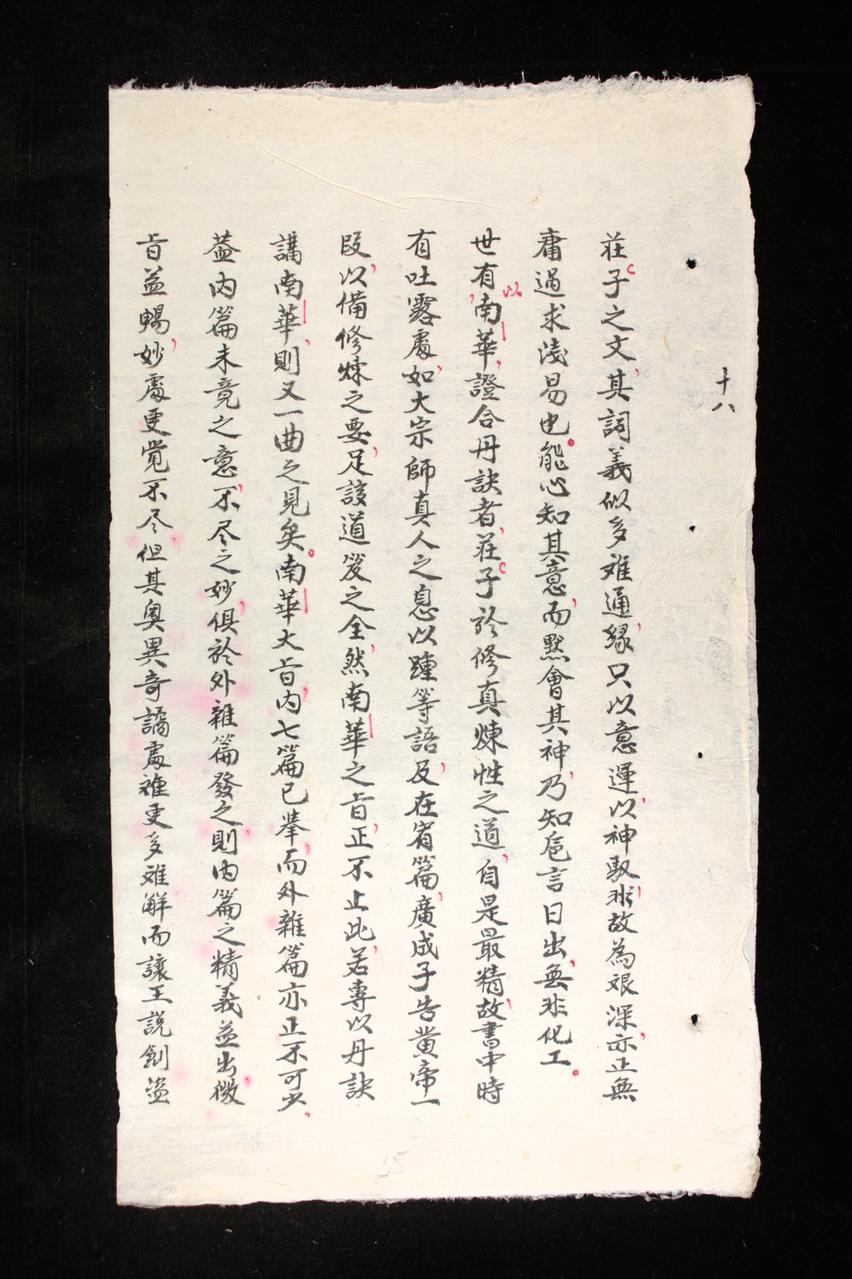 十八
莊子之文其詞義似多难通緣只以意運以神馭非故為艰深亦正無
庸過求淺易也能心知其意而默會其神乃知巵言日出無非化工
世有以南華證合丹訣者莊子於修真煉性之道自是最精故書中時
有吐露處如大宗師真人之息以踵等語及在宥篇廣成子告黄帝一
段以備修煉之要足該道笈之全然南華之旨正不止此若專以丹訣
講南華則又一曲之見矣南華大旨内七篇已舉而外雜篇亦正不可少
蓋内篇未竟之意不尽之妙俱於外雜篇發之則内篇之精義益出微
旨益暢妙處更覺不尽但其奧異奇譎處雜更多难解而讓王説劍盜
35